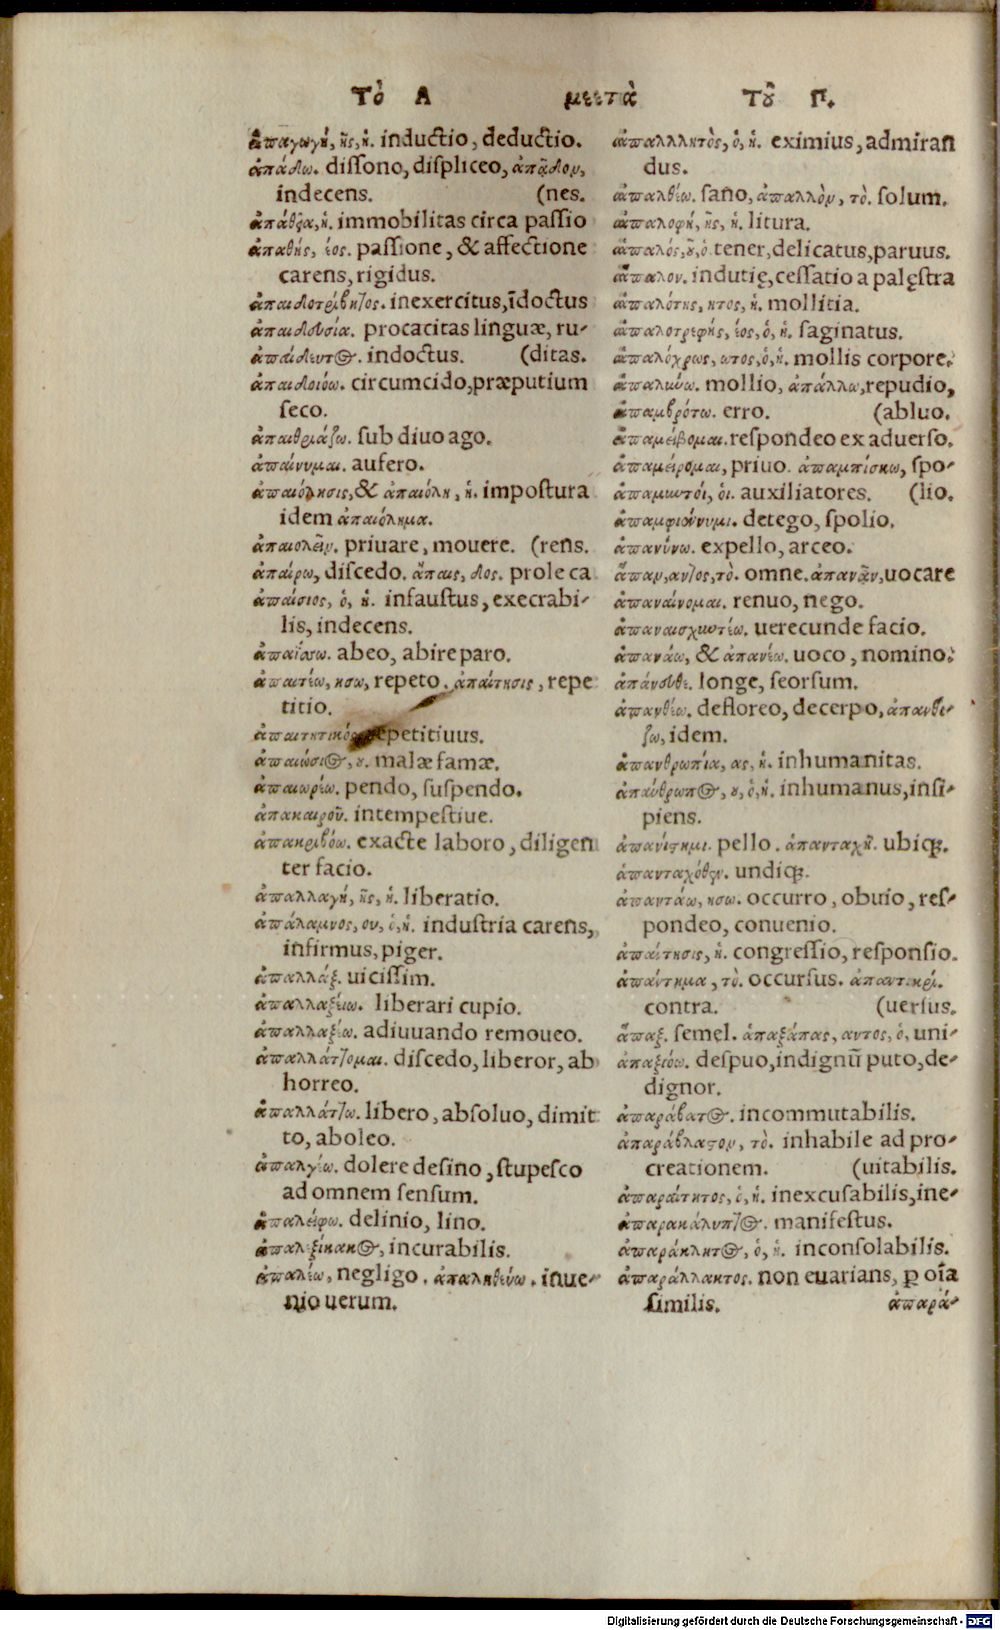 Τὸ Α μετὰ Τοῦ Π.
ἀπαγωγή, ῆς, ἡ. inductio, deductio.
ἀπάδω. dissono, displiceo, ἀπᾷδον,
indecens. (nes.
ἀπάθεια, ἡ. immobilitas circa passio
ἀπαθής, έος. passione, & affectione
carens, rigidus.
ἀπαιδοτρίβητος. inexercitus, īdoctus
ἀπαιδευσία. procacitas linguæ, ru-
ἀπαίδευτος. indoctus. (ditas.
ἀπαιδοιόω. circumcido, præputium
seco.
ἀπαιθριάζω. sub diuo ago.
ἀπαίνυμαι. aufero.
ἀπαιόλησις, & ἀπαιόλη, ἡ. impostura
idem ἀπαιόλημα.
ἀπαιολεῖν. priuare, mouere. (rens.
ἀπαίρω, discedo. ἄπαις, δος. prole ca
ἀπαίσιος, ὁ, ἡ. infaustus, execrabi-
lis, indecens.
ἀπαΐσσω. abeo, abire paro.
ἀπαιτέω, ησω, repeto. ἀπαίτησις, repe
titio.
ἀπαιτητικός repetitiuus.
ἀπαιώσιος, ου. malæ famæ.
ἀπαιωρέω. pendo, suspendo.
ἀπακαιροῦ. intempestiue.
ἀπακριβόω. exacte laboro, diligen
ter facio.
ἀπαλλαγή, ῆς, ἡ. liberatio.
ἀπάλαμνος, ου, ὁ, ἡ. industria carens,
infirmus, piger.
ἀπαλλάξ. uicissim.
ἀπαλλαξείω. liberari cupio.
ἀπαλλαξέω. adiuuando remoueo.
ἀπαλλάττομαι. discedo, liberor, ab
horreo.
ἀπαλλάττω. libero, absoluo, dimit
to, aboleo.
ἀπαλγέω. dolere desino, stupesco
ad omnem sensum.
ἀπαλείφω. delinio, lino.
ἀπαλεξίκακος, incurabilis.
ἀπαλέω, negligo. ἀπαληθεύω. inue-
nio uerum.
ἀπαλλλητὸς, ὁ, ἡ. eximius, admiran
dus.
ἀπαλθέω. sano, ἀπαλλὸν, τὸ. solum.
ἀπαλοφή, ῆς, ἡ. litura.
ἁπαλός, οῦ, ὁ tener, delicatus, paruus.
ἄπαλον. indutię, cessatio a palęstra
ἁπαλότης, ητος, ἡ. mollitia.
ἁπαλοτρεφής, έος, ὁ, ἡ. saginatus.
ἁπαλόχρως, ωτος, ὁ, ἡ. mollis corpore.
ἁπαλύνω. mollio, ἀπάλλω, repudio,
ἀπαμβρότω. erro. (abluo.
ἀπαμείβομαι. respondeo ex aduerso.
ἀπαμείρομαι, priuo. ἀπαμπίσκω, spo-
ἀπαμωτοί, οἱ. auxiliatores. (lio.
ἀπαμφιέννυμι. detego, spolio.
ἀπανύνω. expello, arceo.
ἅπαν, αντος, τὸ. omne. ἀπανᾷν, uocare
ἀπαναίνομαι. renuo, nego.
ἀπαναισχυντέω. uerecunde facio.
ἀπανάω, & ἀπανέω. uoco, nomino.
ἀπάνευθε. longe, seorsum.
ἀπανθέω. defloreo, decerpo, ἀπανθί-
ζω, idem.
ἀπανθρωπία, ας, ἡ. inhumanitas.
ἀπάνθρωπος, ου, ὁ, ἡ. inhumanus, insi-
piens.
ἀπανίστημι. pello. ἁπανταχῆ. ubiq;.
ἁπανταχόθεν. undiq;.
ἀπαντάω, ησω. occurro, obuio, res-
pondeo, conuenio.
ἀπαίτησις, ἡ. congressio, responsio.
ἀπάντημα, τὸ. occursus. ἀπαντικρί.
contra. (uersus.
ἅπαξ. semel. ἁπαξάπας, αντος, ὁ, uni-
ἀπαξιόω. despuo, indignū puto, de-
dignor.
ἀπαράβατος. incommutabilis.
ἀπαράβλαστον, τὸ. inhabile ad pro-
creationem. (uitabilis.
ἀπαραίτητος, ὁ, ἡ. inexcusabilis, ine-
ἀπαρακάλυπτος. manifestus.
ἀπαράκλητος, ὁ, ἡ. inconsolabilis.
ἀπαράλλακτος. non euarians, ꝑ oīa
similis. ἀπαρά-
Digitalisierung gefördert durch die Deutsche Forschungsgemeinschaft - DFG